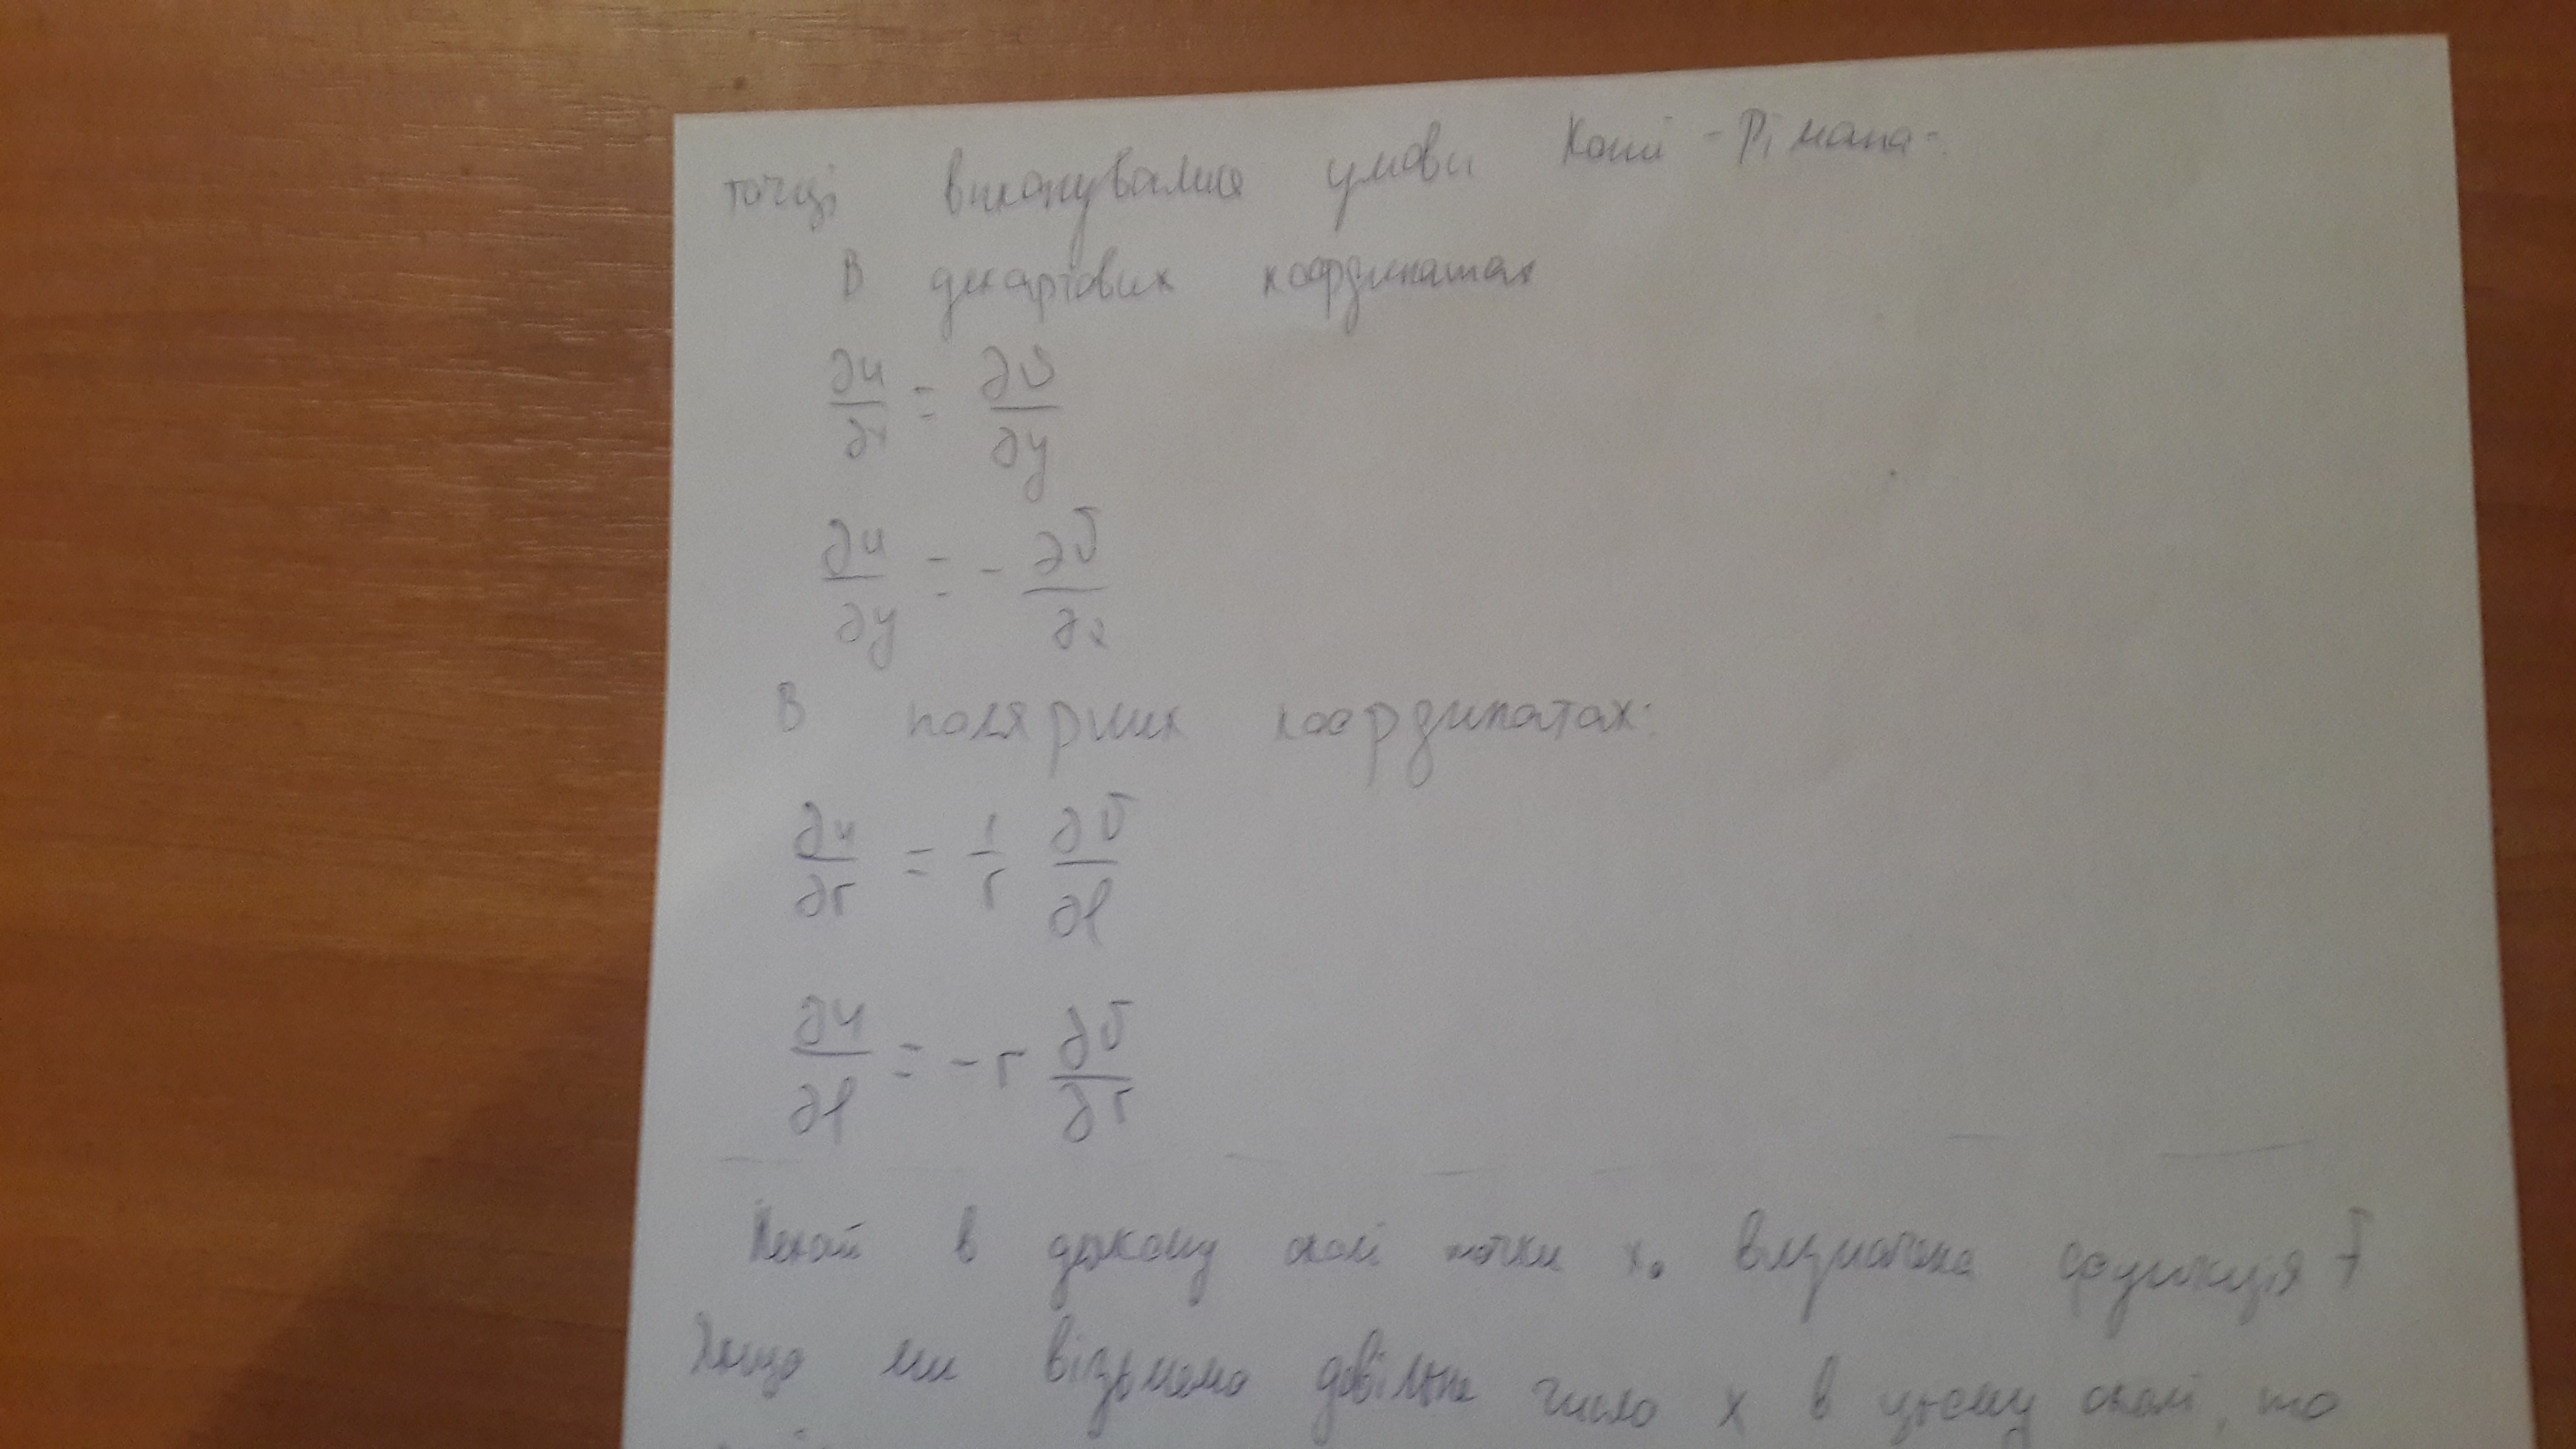 точці виконувалися умови Коші - Рімана:
В декартових координатах
∂u/∂x = ∂υ/∂y
∂u/∂y = - ∂υ/∂x
В полярних координатах:
∂u/∂r = 1/r ∂υ/∂φ
∂u/∂φ = - r ∂υ/∂r
Нехай в деякому околі точки x₀ визначена функція f
Якщо ми візьмемо довільне число x в цьому околі, то